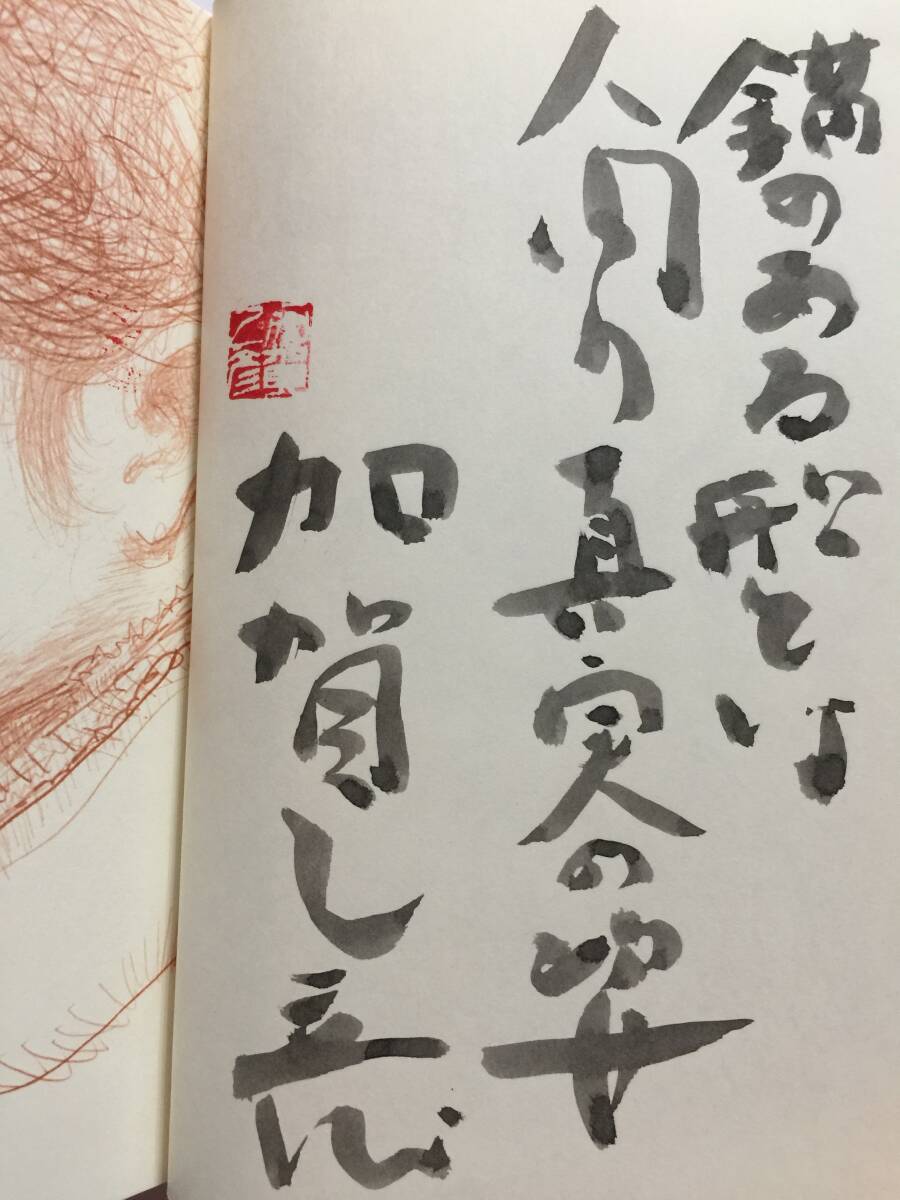 錨のある船とは
人間の真実の姿
加賀乙彦